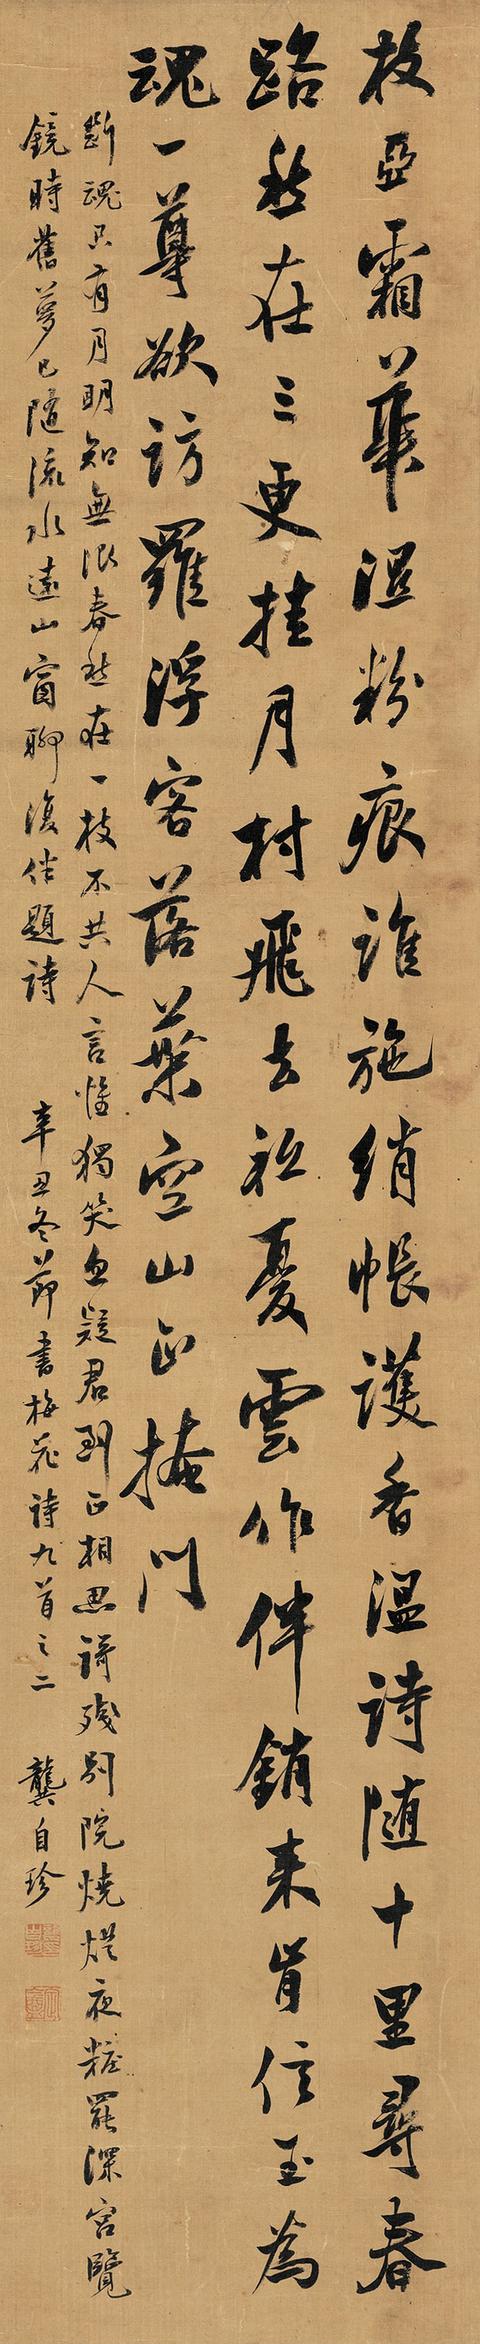 枝亞霜華溼粉痕誰施綃帳護香溫詩隨十里尋春
路愁在三更挂月村飛去祗憂雲作伴銷來肯信玉為
魂一尊欲訪羅浮客落葉空山正掩門
斷魂只有月明知無限春愁在一枝不共人言惟獨笑忽疑君到正相思詩殘別院燒燈夜粧罷深宮覽
鏡時舊夢已隨流水遠山窗聊復伴題詩
辛丑冬節書梅花詩九首之二
龔自珍